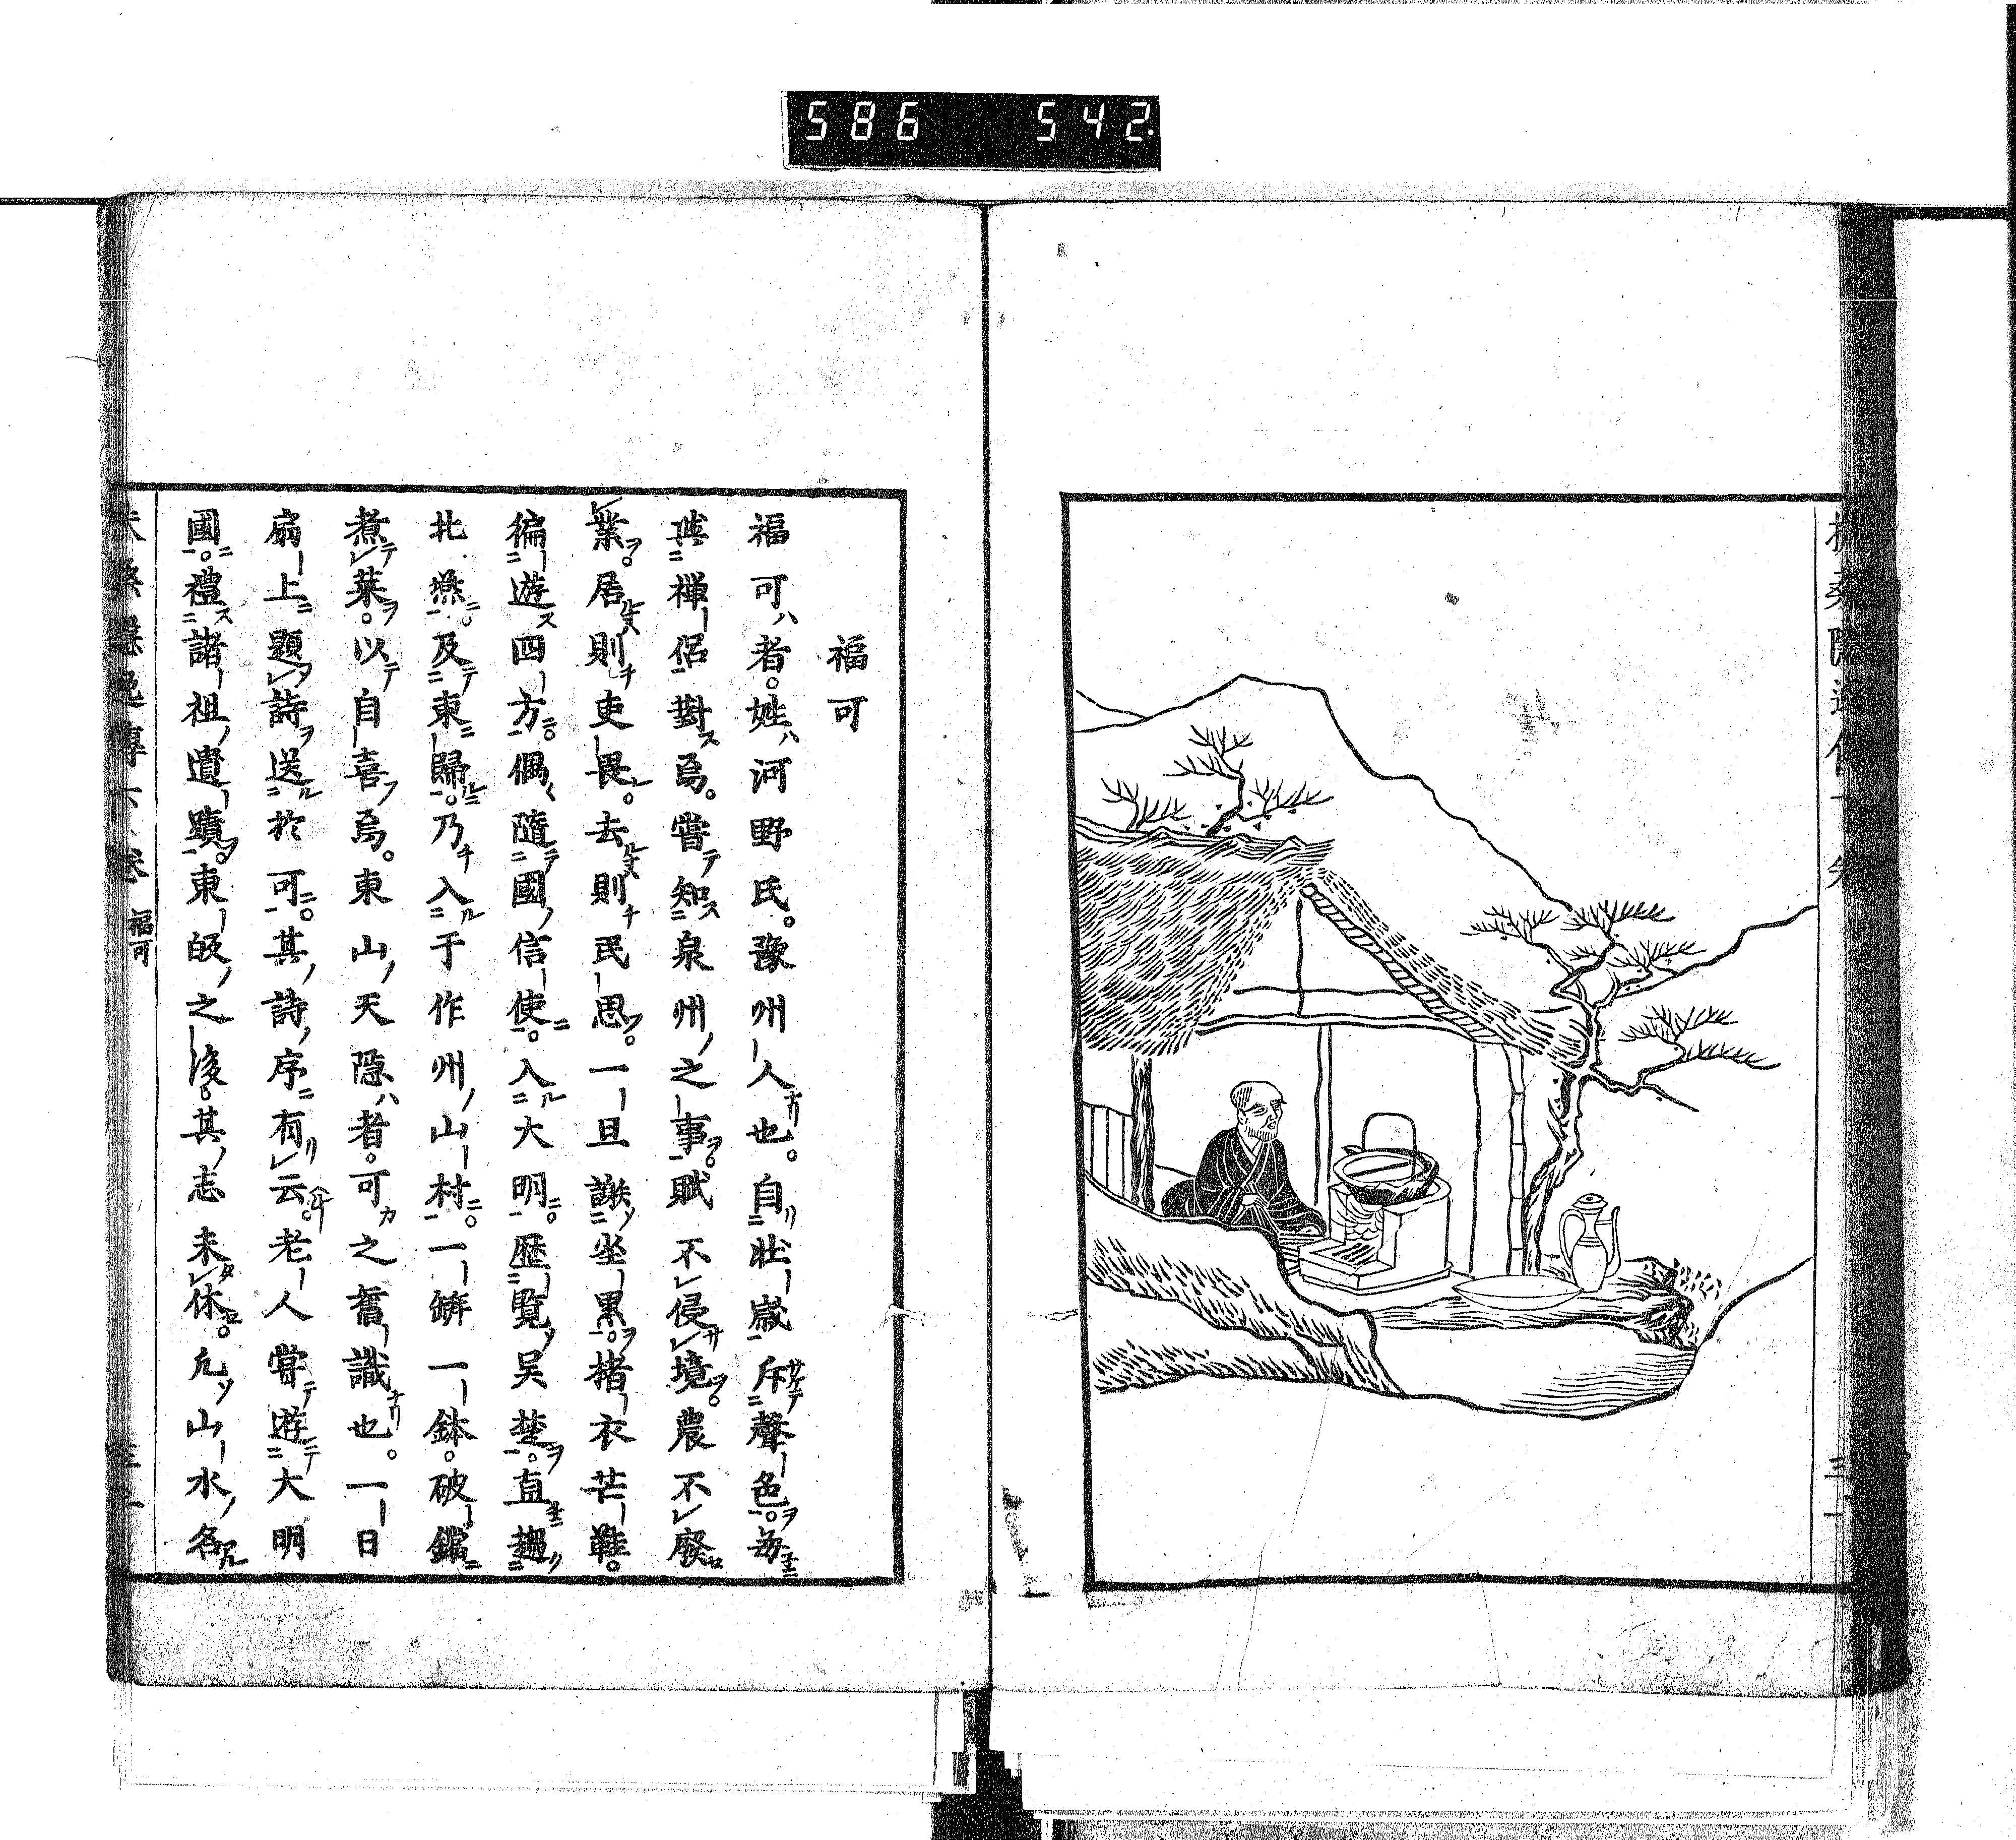 586 542.
福可
福可者。姓河野氏。豫州人也。自壯歲斥聲色。每
與禪侶對焉。嘗知泉州之事。賦不侵境。農不廢
業。居則吏畏。去則民思。一旦謝坐黑。楮衣芒鞋。
徧遊四方。偶隨國信使。入大明。歷覽吳楚。直趨
北燕。及東歸。乃入于作州山村。一缾一鉢。破鐺
煮葉。以自喜焉。東山天隱者。可之舊識也。一日
扇上題詩送於可。其詩序有云。老人嘗遊大明
國。禮諸祖遺蹟。東皈之後。其志未休。凡山水名
扶桑隱逸傳下卷 福可